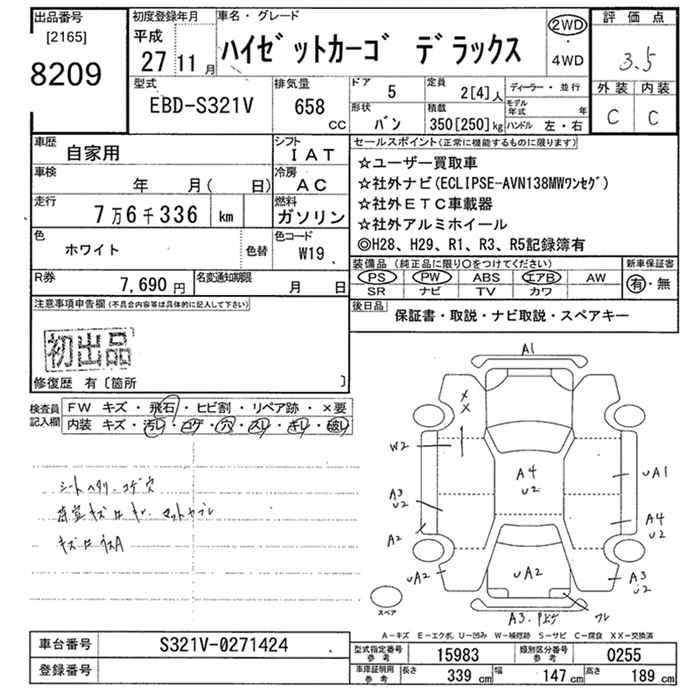 出品番号 初度登録年月 車名・グレード 評価点
[2165] 平成 2WD
8209 27年 11月 ハイゼットカーゴ デラックス ・ 3.5
4WD
型式 排気量 ドア 5 定員 2[4]人 ディーラー・並行 外装 内装
EBD-S321V 658 CC 形状 バン 積載 350[250]kg モデル年式 年 C C
ハンドル 左・右
車歴 自家用 シフト IAT セールスポイント(正常に機能するものに限ります)
車検 年 月( 日) 冷房 AC ☆ユーザー買取車
走行 7万6千336 km 燃料 ガソリン ☆社外ナビ(ECLIPSE-AVN138MWワンセグ)
☆社外ETC車載器
色 ホワイト 色替 色コード W19 ☆社外アルミホイール
◎H28、H29、R1、R3、R5記録簿有
R券 7,690円 名変通知期限 月 日 装備品(純正品に限り○をつけてください) 新車保証書
PS PW ABS エアB AW 有・無
SR ナビ TV カワ
注意事項申告欄(不具合内容等は具体的に記入して下さい) 後日品
初出品 保証書・取説・ナビ取説・スペアキー
修復歴 有〔箇所 〕
検査員記入欄 FW キズ・飛石・ヒビ割・リペア跡・×要
内装 キズ・汚レ・コゲ・穴・スレ・キレ・破レ
A1
X
X
W2
A4
U2
UA1
シートヘタリ コゲ穴
A3
U2
A4
U2
A2
UA2
UA2
A3
U2
スペア
A3
A-キズ E-エクボ、U-凹み W-補修跡 S-サビ C-腐食 XX-交換済
車台番号 S321V-0271424
型式指定番号 参考 15983 類別区分番号 参考 0255
登録番号
車庫証明用 参考 長さ 339cm 幅 147cm 高さ 189cm